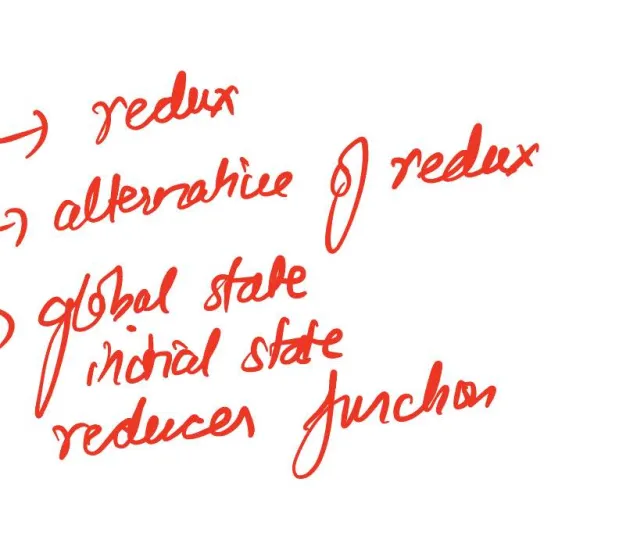 → redux
→ alternative of redux
global state
initial state
reducer function